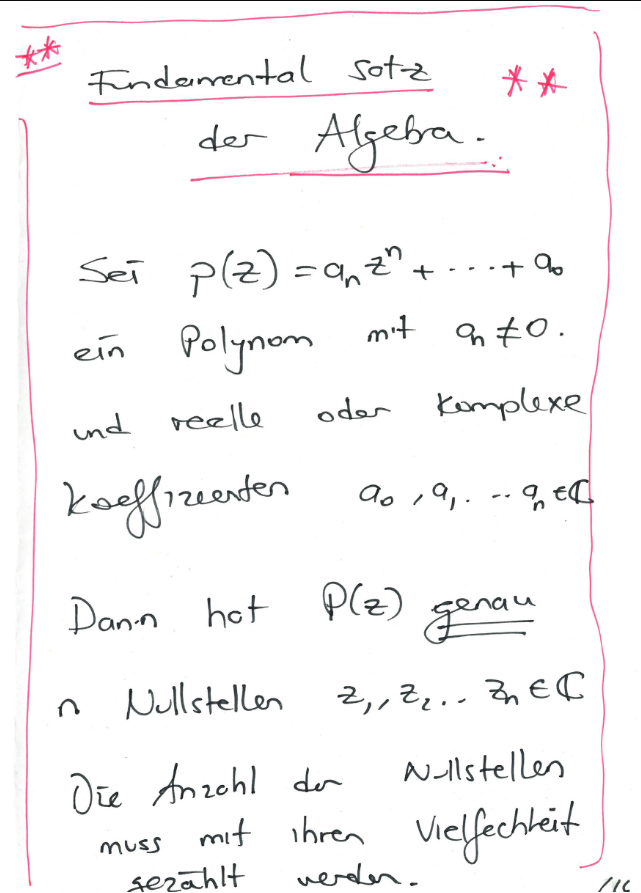 ** Fundamental satz **
der Algebra.
Sei p(z) = aₙzⁿ + ... + a₀
ein Polynom mit aₙ ≠ 0.
und reelle oder komplexe
Koeffizienten a₀, a₁, ... aₙ ∈ ℂ
Dann hat P(z) genau
n Nullstellen z₁, z₂.. zₙ ∈ ℂ
Die Anzahl der Nullstellen
muss mit ihren Vielfachheit
gezählt werden.